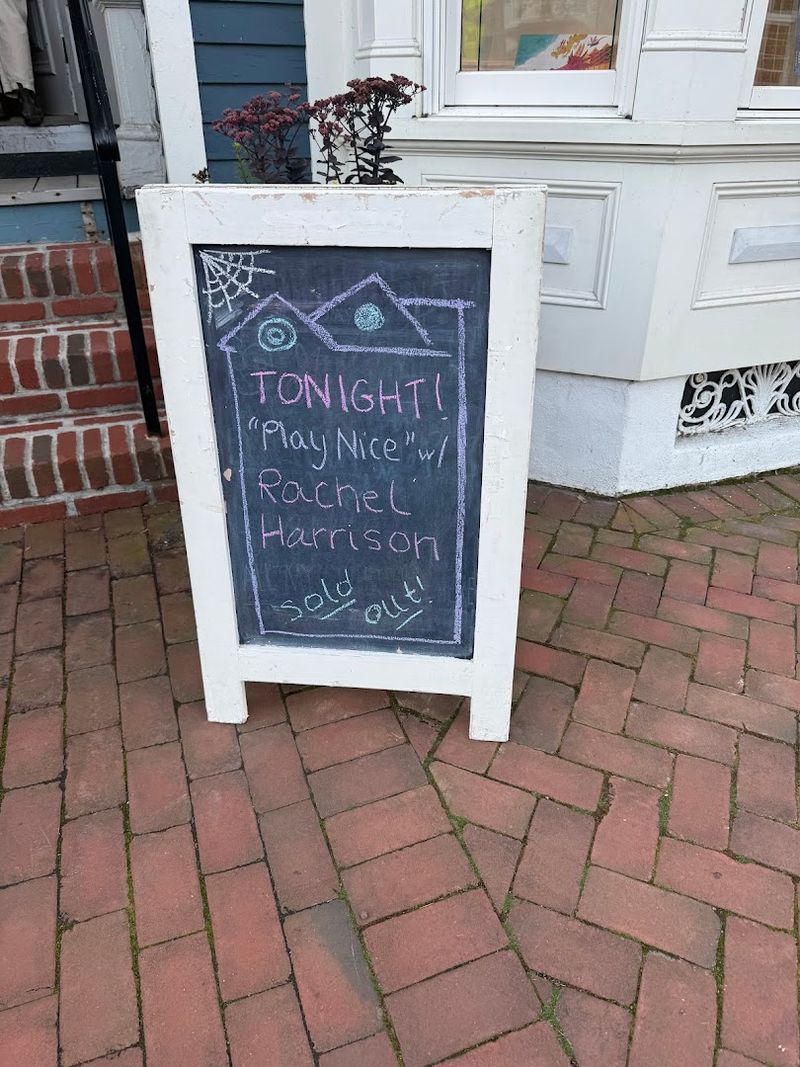 TONIGHT!
"Play Nice" w/
Rachel
Harrison
sold out!